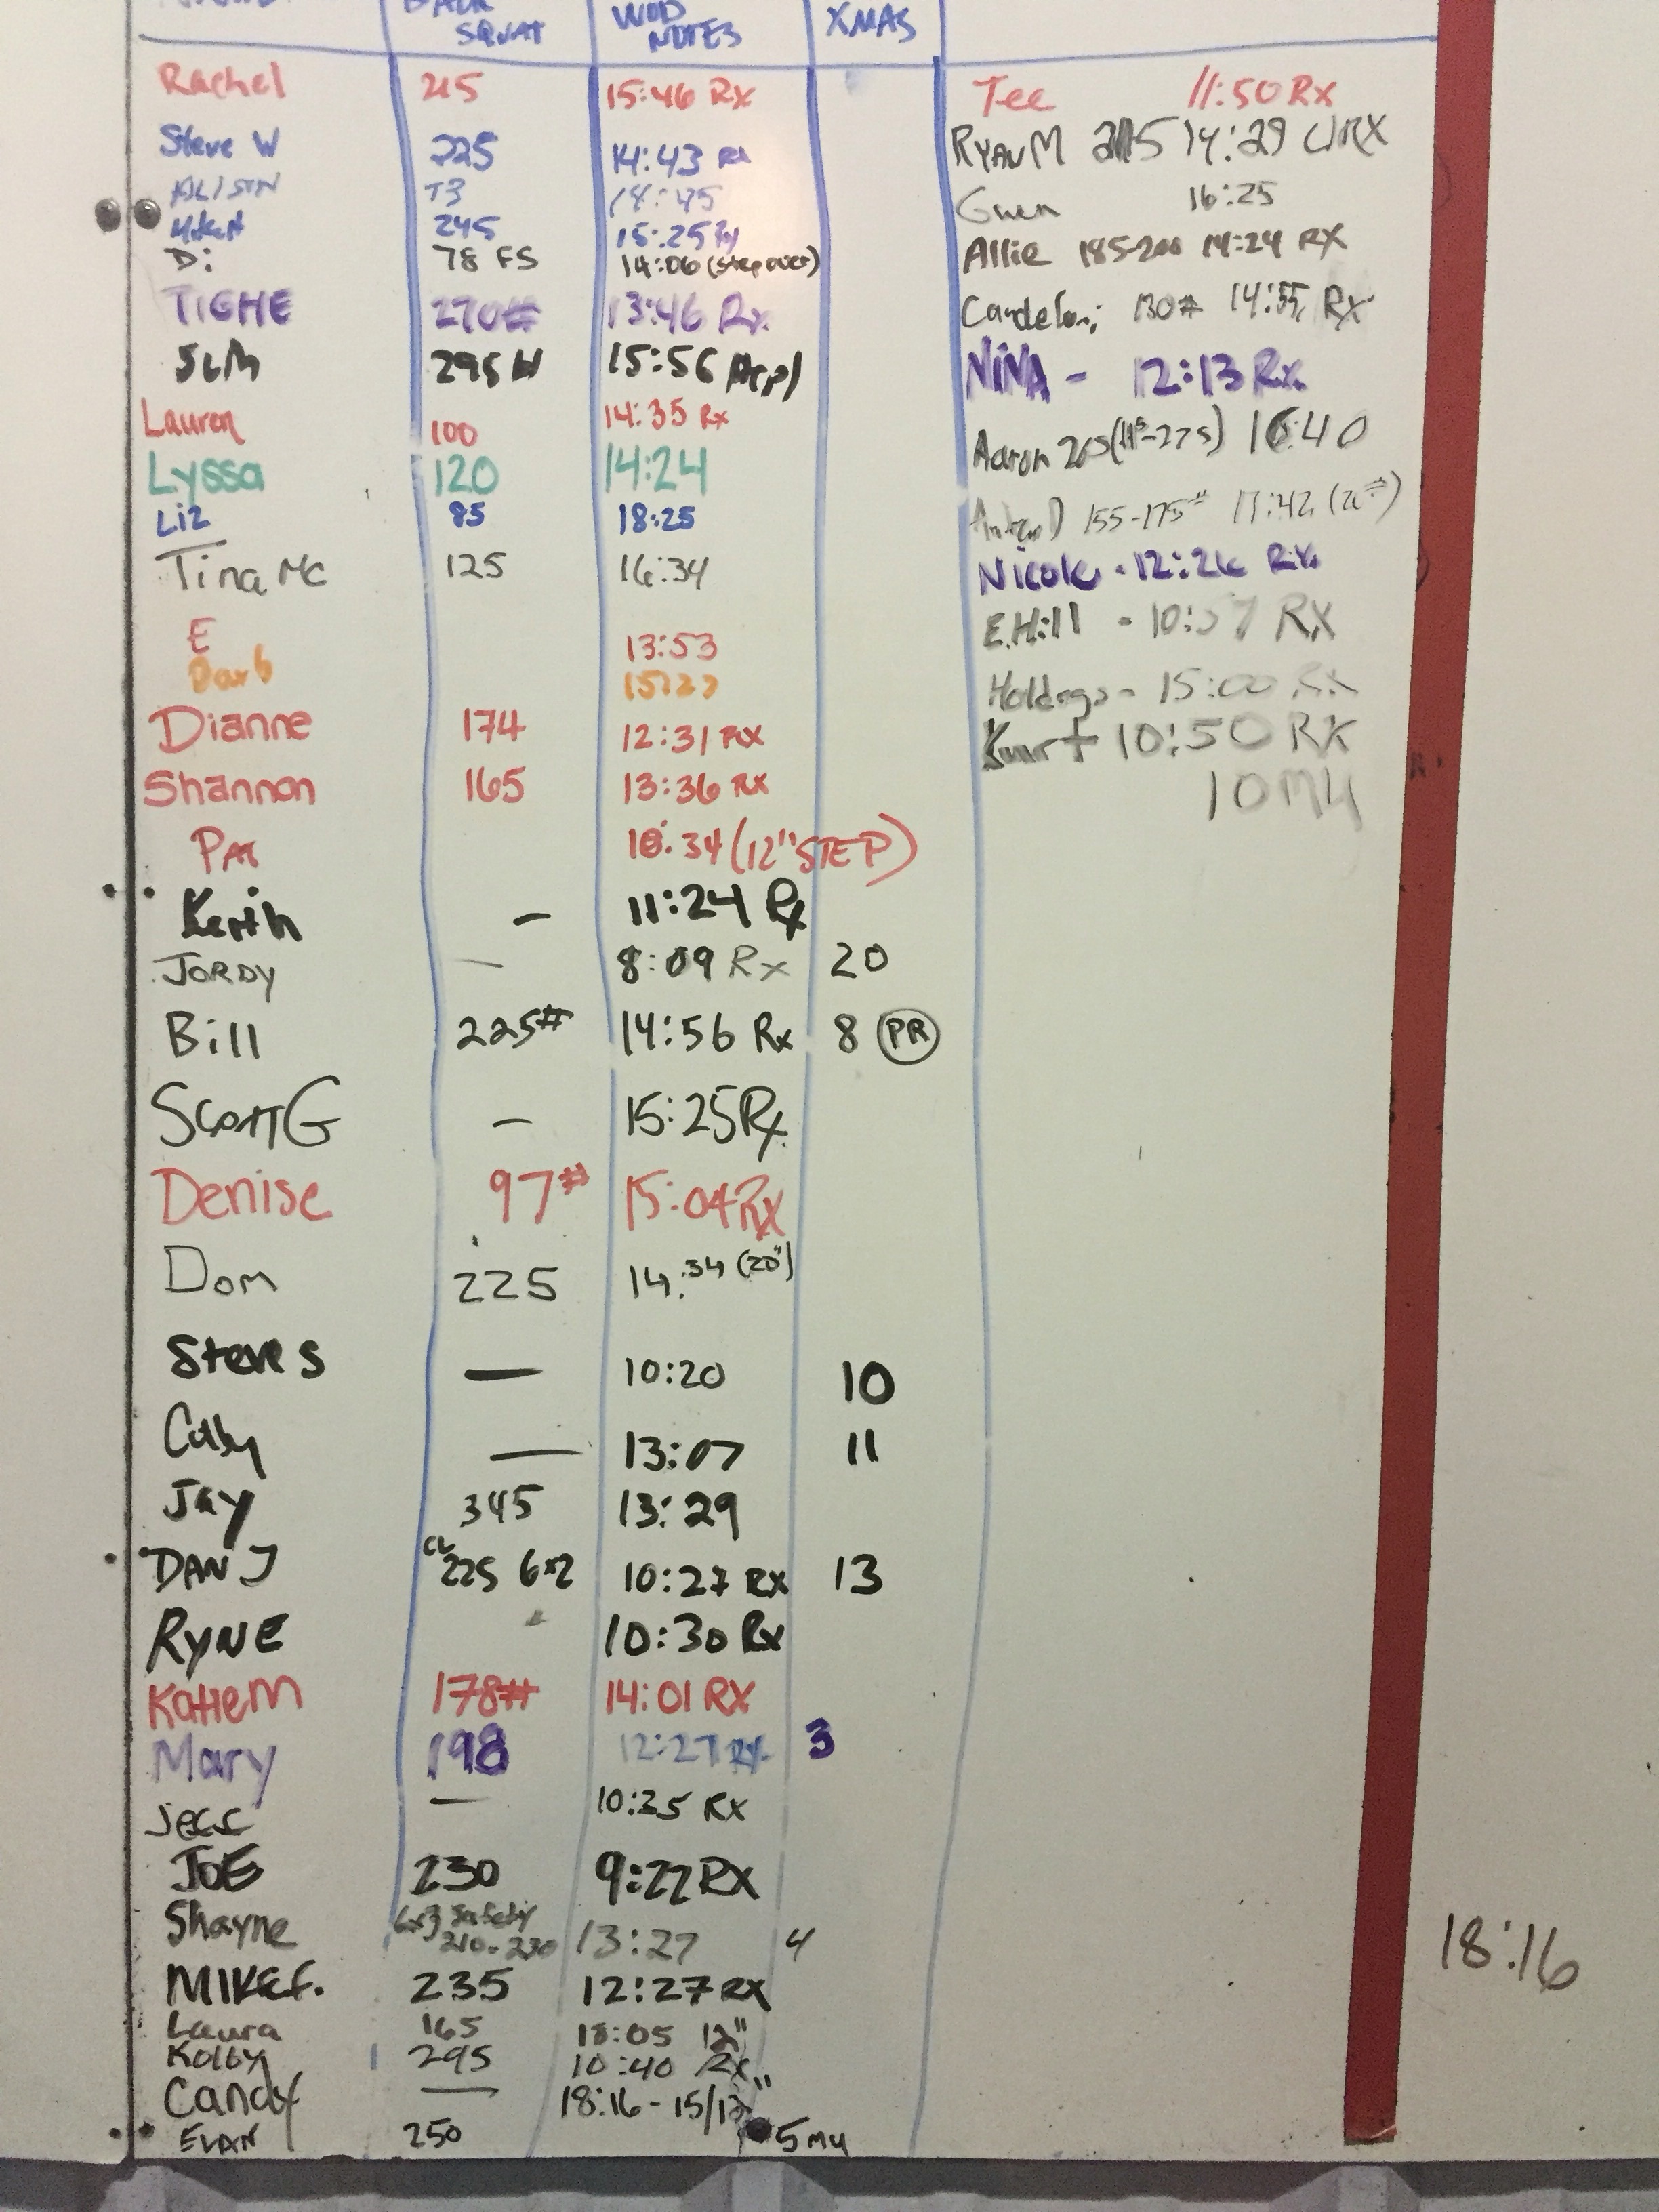 SQUAT WOD NOTES XMAS
Rachel 215 15:46 Rx
Steve W 225 14:43 Rx
ALISON 73 18:45
245 15:25
Di 78 FS 14:06 (step over)
TIGHE 270# 13:46 Rx
295# 15:56
Lauren 100 14:35 Rx
Lyssa 120 14:24
Liz 85 18:25
Tina Mc 125 16:34
E 13:53
Barb
Dianne 174 12:31 RX
Shannon 165 13:36 RX
PAT 34 (12" STEP)
11:24 Rx
JORDY — 8:09 Rx 20
Bill 225# 14:56 Rx 8 PR
Scott G — 15:25 Rx
Denise 97# 15:04 RX
Dom 225 14:34 (20")
Steve S — 10:20 10
Colby — 13:07 11
Jay 345 13:29
DAN J 225 6x2 10:27 RX 13
RYNE 10:30 Rx
Katie M 178# 14:01 RX
Mary 198 12:27 RX 3
Jess — 10:25 RX
JOE 230 9:22 RX
Shayne 6x3 Safety 13:27 4
210-230
MIKE F. 235 12:27 RX
Laura 165 18:05 12"
Kolby 295 10:40 Rx
Candy — 18:16 - 15/12"
EVAN 250 5 mu
Tee 11:50 Rx
RYAN M 14:29 RX
Gwen 16:25
Allie 185-200 14:24 RX
130# Rx
NINA - 12:13 Rx
Aaron 265 40
155-175# 17:42 (20")
Nicole - 12:26 Rx
E.Hill - 10:57 RX
15:00 Rx
Kurt 10:50 RX
10 MU
18:16